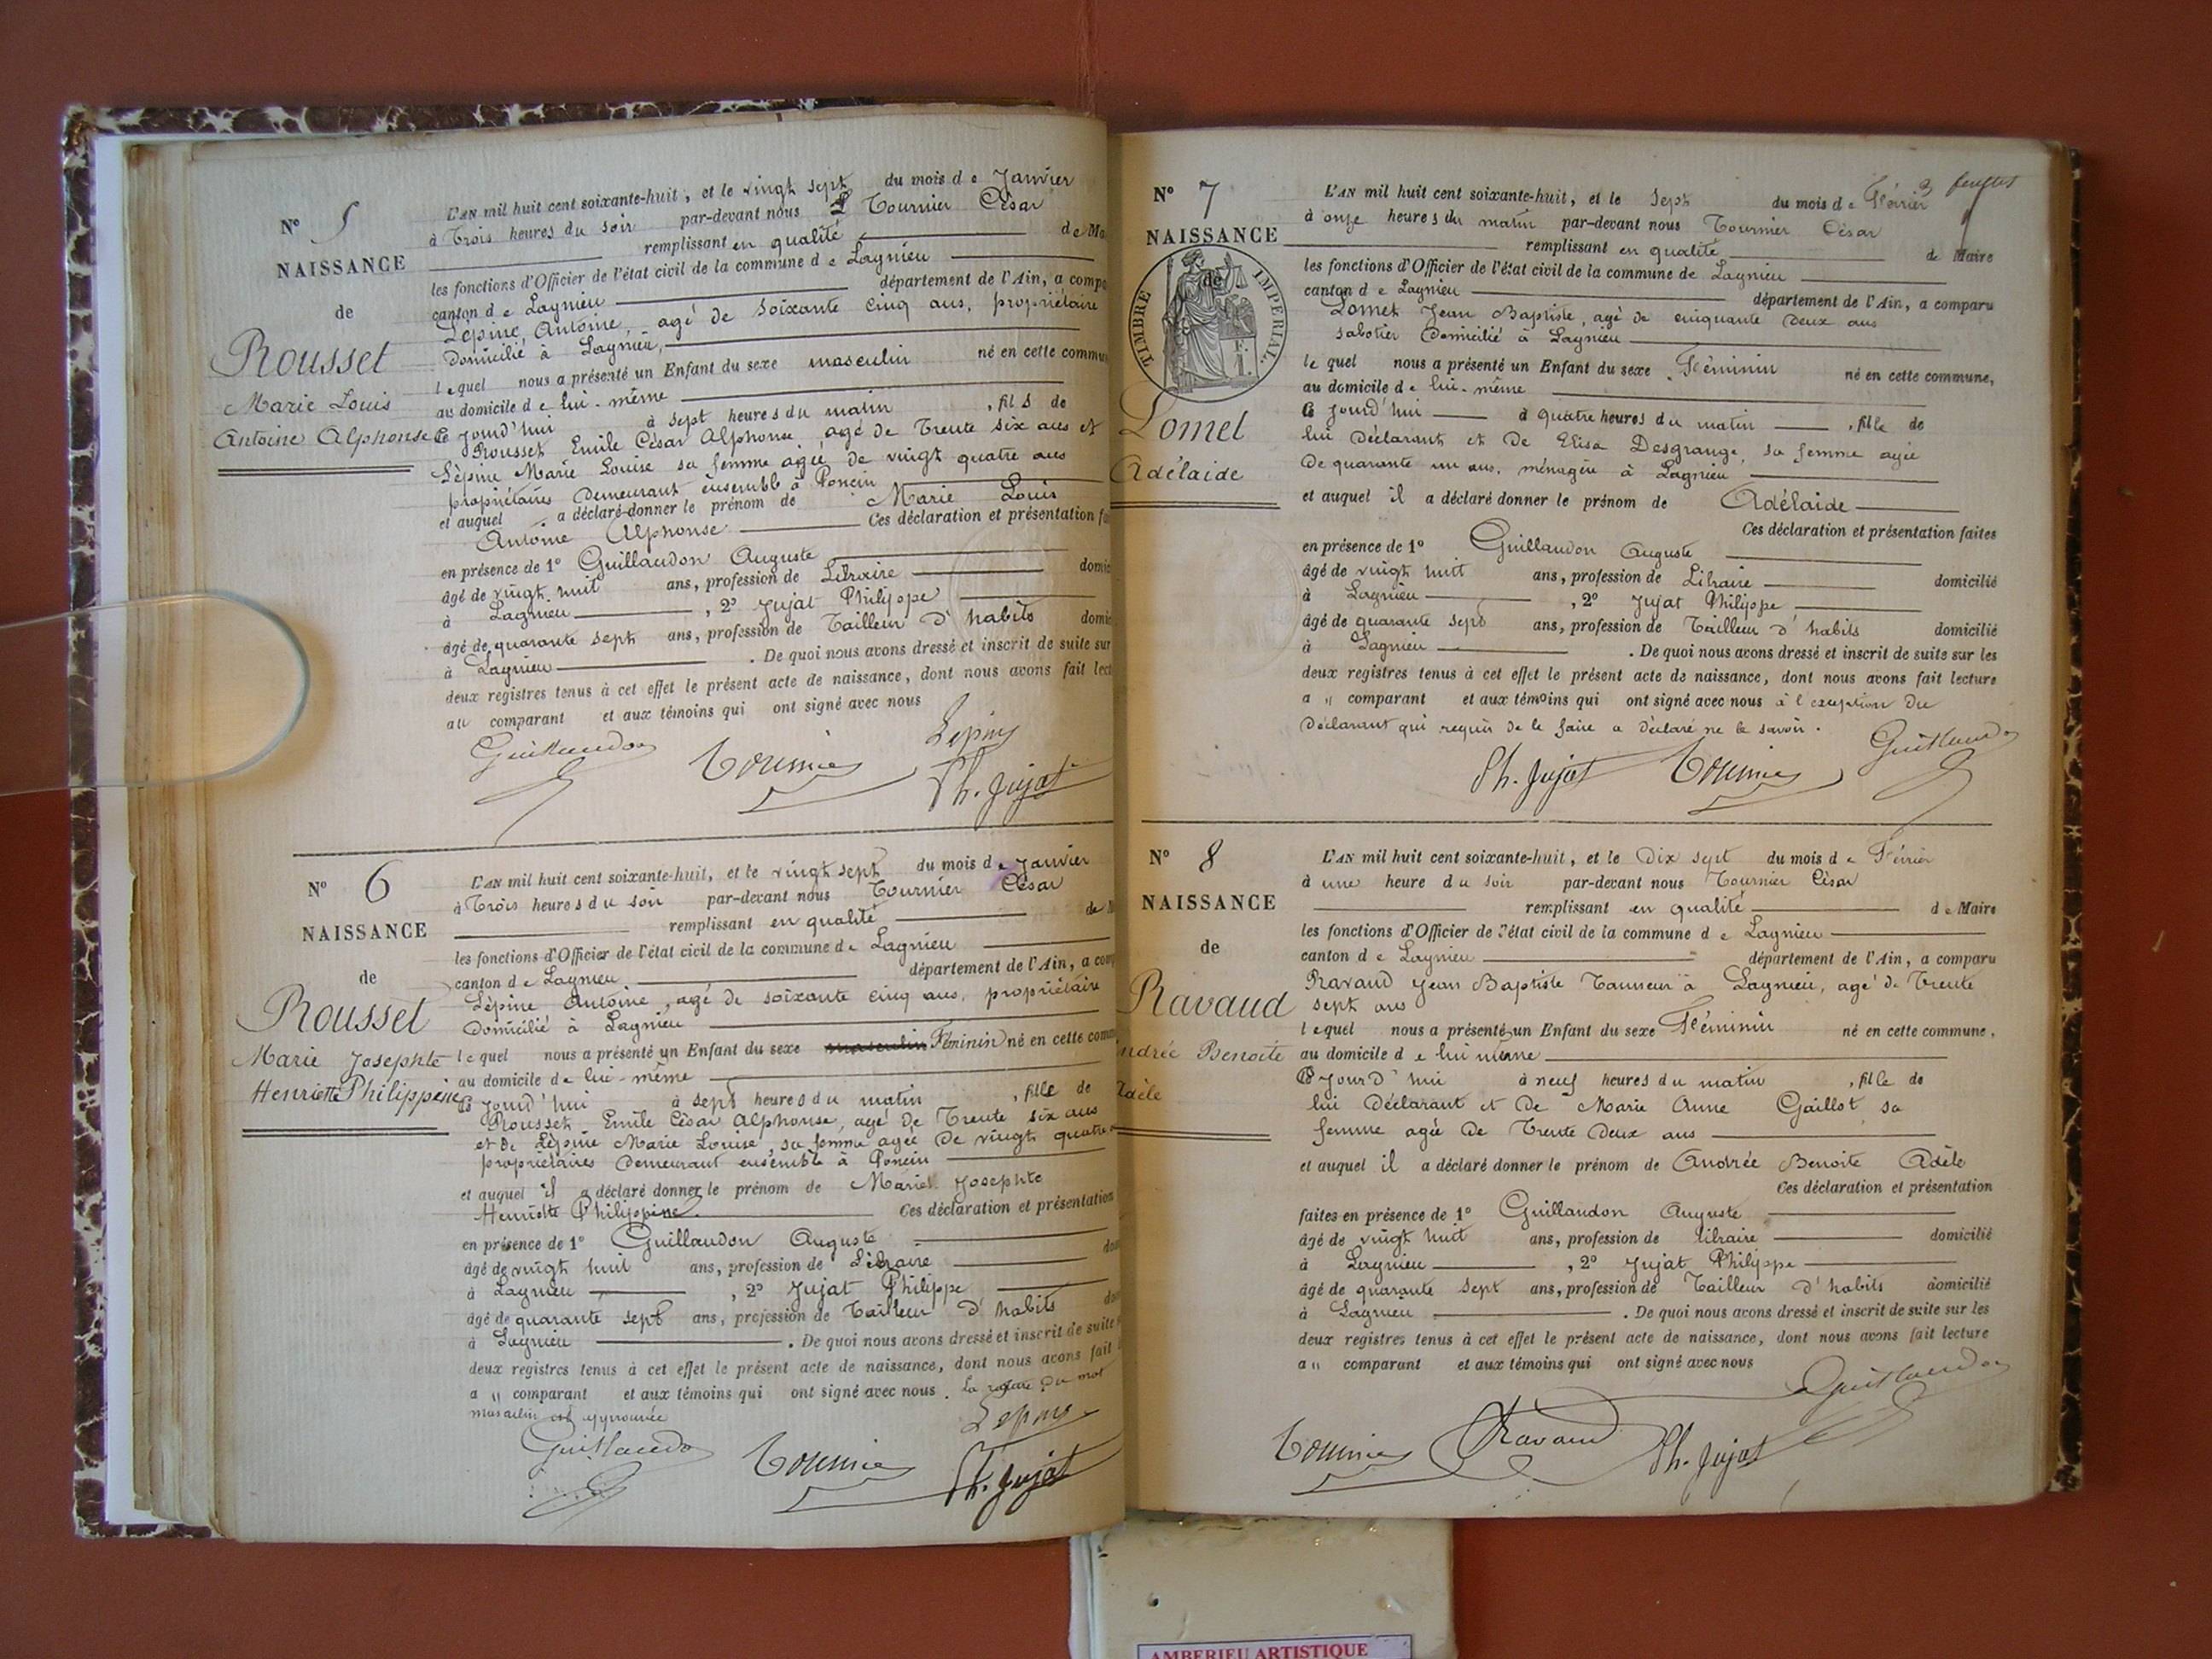 N° 5
NAISSANCE
de
Rousset
Marie Louis
Antoine Alphonse
L'AN mil huit cent soixante-huit, et le vingt sept du mois de Janvier
à Trois heures du soir par-devant nous Tournier César
remplissant en qualité de Ma
les fonctions d'Officier de l'état civil de la commune de Lagnieu
canton de Lagnieu département de l'Ain, a compa
Lépine Antoine, agé de soixante cinq ans, propriétaire
domicilié à Lagnieu,
lequel nous a présenté un Enfant du sexe masculin né en cette commu
au domicile de lui-même
Ce jourd'hui à sept heures du matin, fils de
Rousset Emile César Alphonse, agé de Trente six ans et
Lépine Marie Louise sa femme agée de vingt quatre ans
propriétaires demeurant ensemble à Poncin
et auquel a déclaré donner le prénom de Marie Louis
Antoine Alphonse Ces déclaration et présentation fa
en présence de 1° Guillaudon Auguste
âgé de vingt huit ans, profession de Libraire domic
à Lagnieu, 2° Jujat Philippe
âgé de quarante sept ans, profession de Tailleur d'habits domic
à Lagnieu. De quoi nous avons dressé et inscrit de suite sur
deux registres tenus à cet effet le présent acte de naissance, dont nous avons fait lect
au comparant et aux témoins qui ont signé avec nous
Lépine
Guillaudon Tournier Ph. Jujat
N° 6
NAISSANCE
de
Rousset
Marie Josephte
Henriette Philippine
L'AN mil huit cent soixante-huit, et le vingt sept du mois de Janvier
à Trois heures du soir par-devant nous Tournier César
remplissant en qualité de M
les fonctions d'Officier de l'état civil de la commune de Lagnieu
canton de Lagnieu département de l'Ain, a comp
Lépine Antoine, agé de soixante cinq ans, propriétaire
domicilié à Lagnieu
lequel nous a présenté un Enfant du sexe masculin Féminin né en cette comm
au domicile de lui-même
Ce jourd'hui à sept heures du matin, fille de
Rousset Emile César Alphonse, agé de Trente six ans
et de Lépine Marie Louise, sa femme agée de vingt quatre
propriétaires demeurant ensemble à Poncin
et auquel il a déclaré donner le prénom de Marie Josephte
Henriette Philippine Ces déclaration et présentation
en présence de 1° Guillaudon Auguste
âgé de vingt huit ans, profession de Libraire dom
à Lagnieu, 2° Jujat Philippe
âgé de quarante sept ans, profession de Tailleur d'habits dom
à Lagnieu. De quoi nous avons dressé et inscrit de suite
deux registres tenus à cet effet le présent acte de naissance, dont nous avons fait
a u comparant et aux témoins qui ont signé avec nous. La rature du mot
masculin est approuvée
Lépine
Guillaudon Tournier Ph. Jujat
3 feuillet
N° 7
NAISSANCE
de
TIMBRE IMPERIAL.
Lomet
Adélaide
L'AN mil huit cent soixante-huit, et le sept du mois de Février
à onze heures du matin par-devant nous Tournier César
remplissant en qualité de Maire
les fonctions d'Officier de l'état civil de la commune de Lagnieu
canton de Lagnieu département de l'Ain, a comparu
Lomet Jean Baptiste, agé de cinquante deux ans
sabotier domicilié à Lagnieu
lequel nous a présenté un Enfant du sexe Féminin né en cette commune,
au domicile de lui-même
Ce jourd'hui à quatre heures du matin, fille de
lui déclarant et de Elisa Desgrange, sa femme agée
de quarante un ans, ménagère à Lagnieu
et auquel il a déclaré donner le prénom de Adélaide
Ces déclaration et présentation faites
en présence de 1° Guillaudon Auguste
âgé de vingt huit ans, profession de Libraire domicilié
à Lagnieu, 2° Jujat Philippe
âgé de quarante sept ans, profession de Tailleur d'habits domicilié
à Lagnieu. De quoi nous avons dressé et inscrit de suite sur les
deux registres tenus à cet effet le présent acte de naissance, dont nous avons fait lecture
a u comparant et aux témoins qui ont signé avec nous à l'exception du
déclarant qui requis de le faire a déclaré ne le savoir.
Ph. Jujat Tournier Guillaudon
N° 8
NAISSANCE
de
Ravaud
ndrée Benoite
dèle
L'AN mil huit cent soixante-huit, et le Dix sept du mois de Février
à une heure du soir par-devant nous Tournier César
remplissant en qualité de Maire
les fonctions d'Officier de l'état civil de la commune de Lagnieu
canton de Lagnieu département de l'Ain, a comparu
Ravaud Jean Baptiste Tanneur à Lagnieu, agé de Trente
sept ans
lequel nous a présenté un Enfant du sexe Féminin né en cette commune,
au domicile de lui même
Ce jourd'hui à neuf heures du matin, fille de
lui déclarant et de Marie Anne Gaillot sa
femme agée de Trente deux ans
et auquel il a déclaré donner le prénom de Andrée Benoite Adèle
Ces déclaration et présentation
faites en présence de 1° Guillaudon Auguste
âgé de vingt huit ans, profession de libraire domicilié
à Lagnieu, 2° Jujat Philippe
âgé de quarante sept ans, profession de Tailleur d'habits domicilié
à Lagnieu. De quoi nous avons dressé et inscrit de suite sur les
deux registres tenus à cet effet le présent acte de naissance, dont nous avons fait lecture
a u comparant et aux témoins qui ont signé avec nous
Guillaudon
Tournier Ravaud Ph. Jujat
AMBERIEU ARTISTIQUE